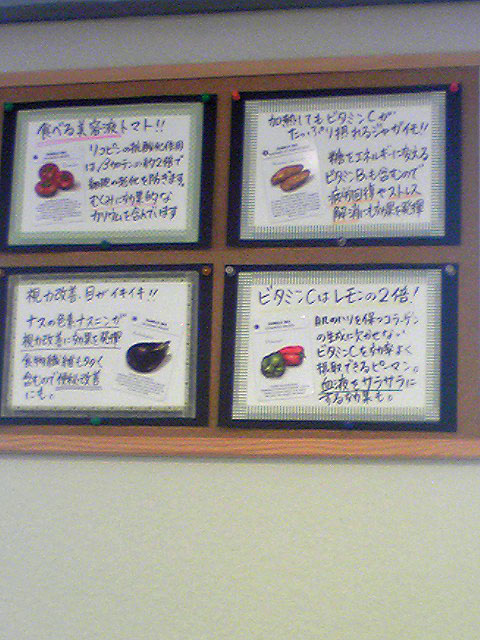 食べる美容液トマト!!
リコピンの抗酸化作用
はβカロテンの約2倍で
細胞の老化を防ぎます。
むくみに効果的な
カリウムを含んでいます
加熱してもビタミンCが
たっぷり摂れるジャガイモ!!
糖をエネルギーに変える
ビタミンB1も含むので
疲労回復やストレス
解消にも効果を発揮
視力改善.目がイキイキ!!
ナスの色素ナスニンが
視力改善に効果を発揮
食物繊維も多く
含むので便秘改善
にも。
ビタミンCはレモンの2倍!
肌のハリを保つコラーゲン
の生成に欠かせない
ビタミンCを効率よく
摂取できるピーマン。
血液をサラサラに
する効果も。